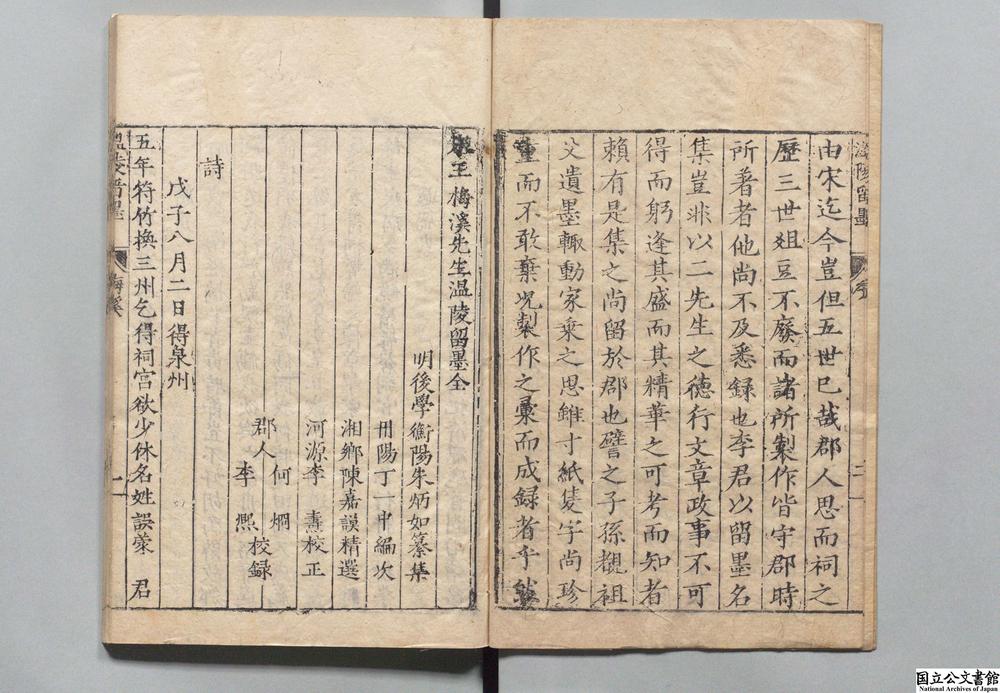 溫陵留墨 序 二
由宋迄今豈但五世已哉郡人思而祠之
歷三世俎豆不廢而諸所製作皆守郡時
所著者他尚不及悉録也李君以留墨名
集豈非以二先生之德行文章政事不可
得而躬逢其盛而其精華之可考而知者
賴有是集之尚留於郡也譬之子孫覩祖
父遺墨輙動家乘之思雖寸紙隻字尚珍
重而不敢棄况製作之彙而成録者乎
宋王梅溪先生温陵留墨全
明後學衡陽朱炳如纂集
丹陽丁一中編次
湘鄉陳嘉謨精選
河源李燾校正
郡人何烱
李熈校録
詩
戊子八月二日得泉州
五年符竹換三州乞得祠宫欲少休名姓誤蒙 君
溫陵留墨 梅溪 一
国立公文書館
National Archives of Japan